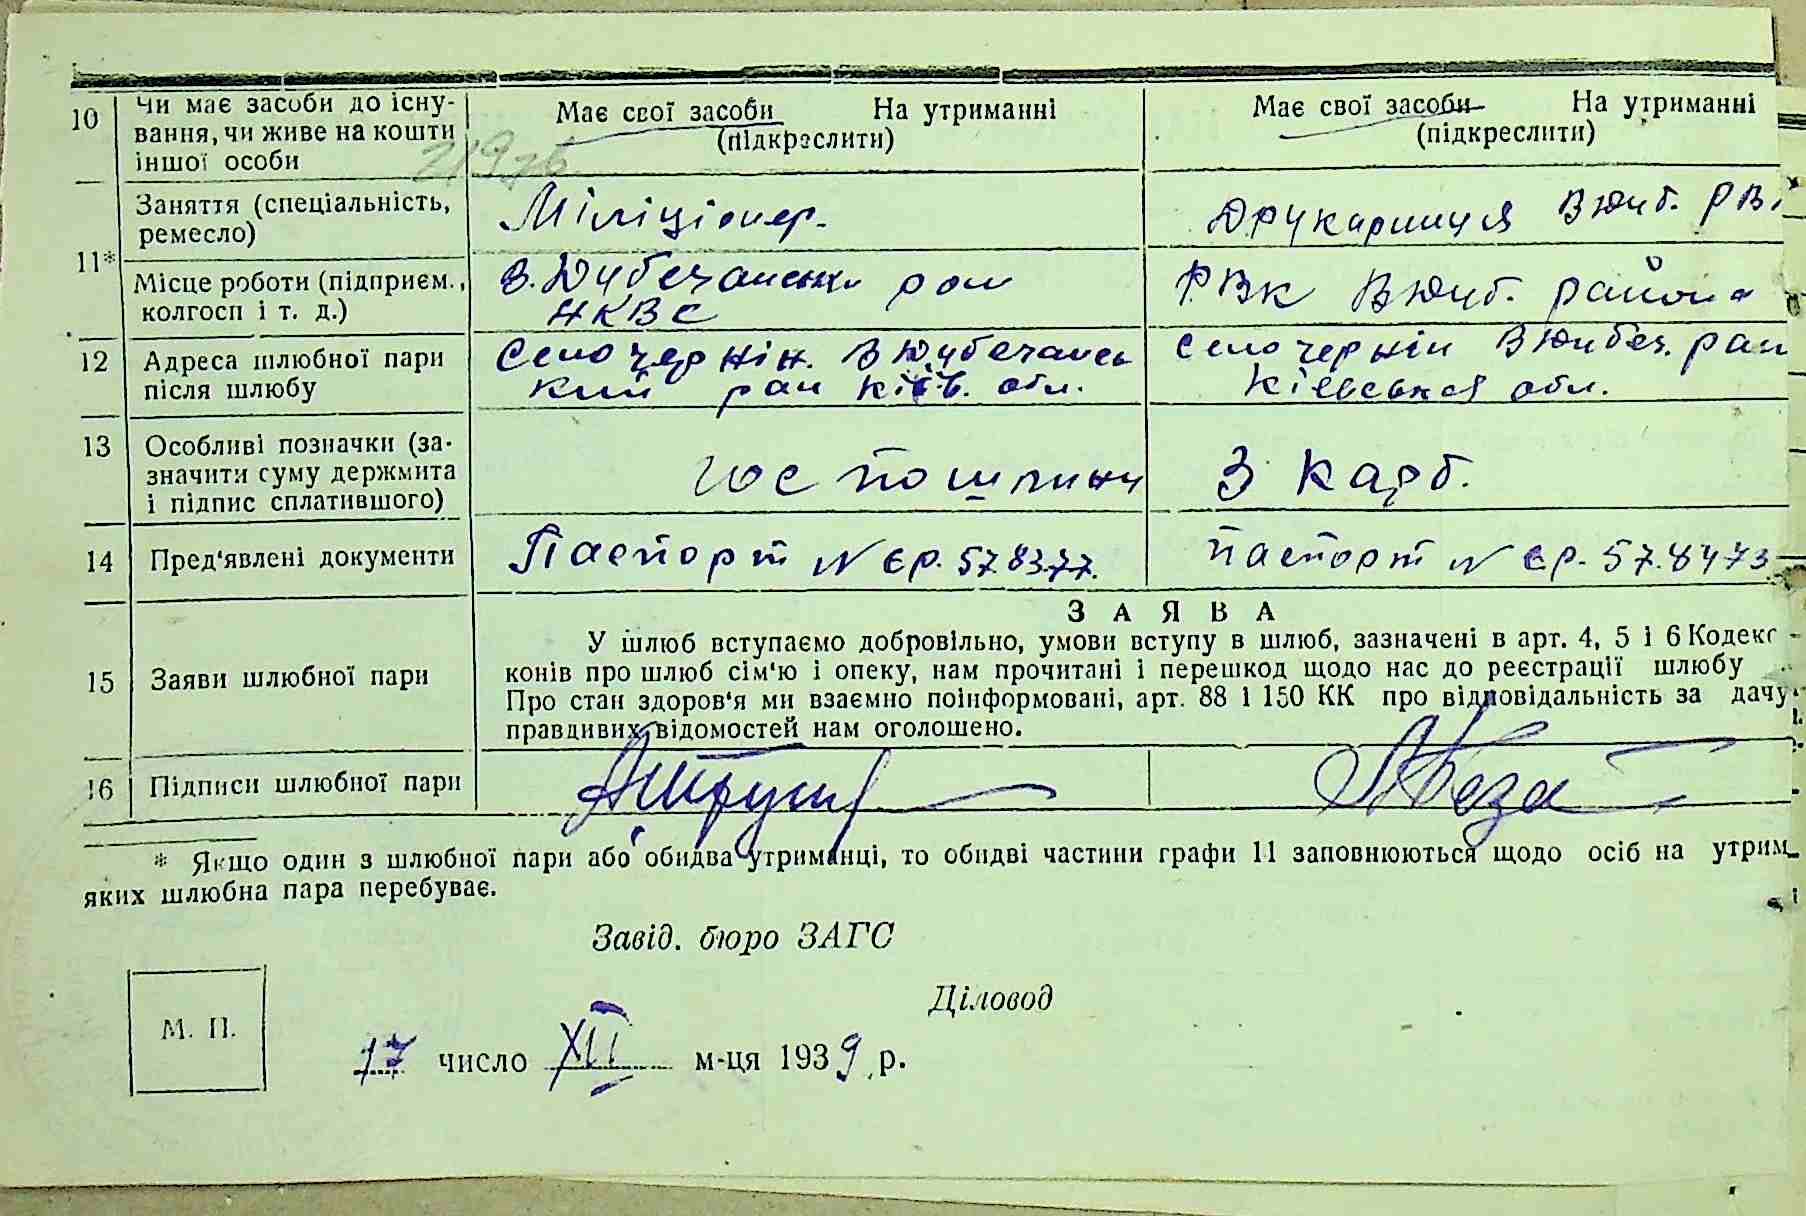 10 Чи має засоби до існу- Має свої засоби На утриманні Має свої засоби На утриманні
вання, чи живе на кошти (підкреслити) (підкреслити)
іншої особи
Заняття (спеціальність, Міліціонер. Друкарниця В Дуб. РВ
ремесло)
11*
Місце роботи (підприєм., В. Дубечанськи рай РВК В Дуб. район
колгосп і т. д.) НКВС
12 Адреса шлюбної пари Село Чернін. В Дубечансь Село Чернін В Дубеч. рай
після шлюбу кий рай Київ. обл. Кіевська обл.
13 Особливі позначки (за- гос пошлини 3 карб.
значити суму держмита
і підпис сплатившого)
14 Пред'явлені документи Паспорт N єр. 578377. Паспорт N єр. 578473
З А Я В А
У шлюб вступаємо добровільно, умови вступу в шлюб, зазначені в арт. 4, 5 і 6 Кодекс
15 Заяви шлюбної пари конів про шлюб сім'ю і опеку, нам прочитані і перешкод щодо нас до реєстрації шлюбу
Про стан здоров'я ми взаємно поінформовані, арт. 88 і 150 КК про відповідальність за дачу
правдивих відомостей нам оголошено.
16 Підписи шлюбної пари
* Якщо один з шлюбної пари або обидва утриманці, то обидві частини графи 11 заповнюються щодо осіб на утрим
яких шлюбна пара перебуває.
Завід. бюро ЗАГС
Діловод
М. П.
17 число XII м-ця 1939 р.